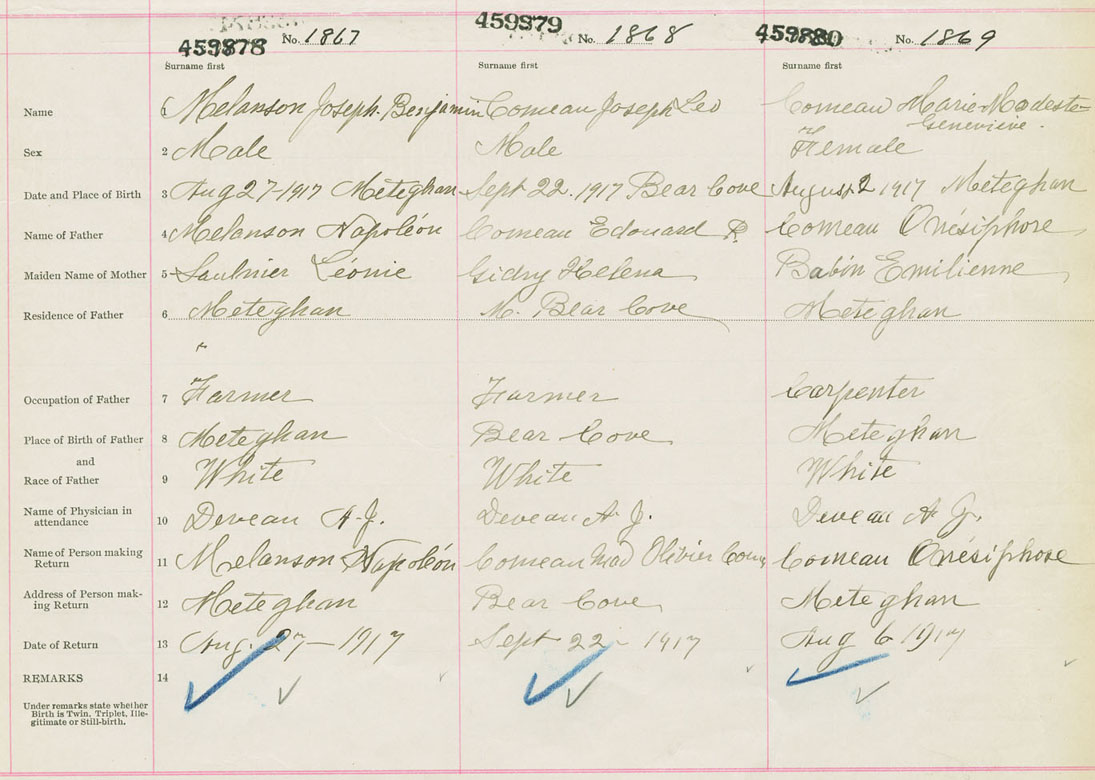 459878 No. 1867 459879 No. 1868 459880 No. 1869
Surname first Surname first Surname first
Name 1 Melanson Joseph. Benjamin Comeau Joseph Leo Comeau Marie Modeste
Genevieve.
Sex 2 Male Male Female
Date and Place of Birth 3 Aug 27-1917 Meteghan Sept 22. 1917 Bear Cove August 2 1917 Meteghan
Name of Father 4 Melanson Napoléon Comeau Edouard R. Comeau Onésiphore
Maiden Name of Mother 5 Saulnier Léonie Gidry Helena Babin Emilienne
Residence of Father 6 Meteghan M. Bear Cove Meteghan
Occupation of Father 7 Farmer Farmer Carpenter
Place of Birth of Father 8 Meteghan Bear Cove Meteghan
and
Race of Father 9 White White White
Name of Physician in
attendance 10 Deveau A. J. Deveau A J. Deveau A J.
Name of Person making
Return 11 Melanson Napoléon Comeau Mad Olivier Comeau Onésiphore
Address of Person mak-
ing Return 12 Meteghan Bear Cove Meteghan
Date of Return 13 Aug. 27-1917 Sept 22-1917 Aug 6 1917
REMARKS 14
Under remarks state whether
Birth is Twin, Triplet, Ille-
gitimate or Still-birth.